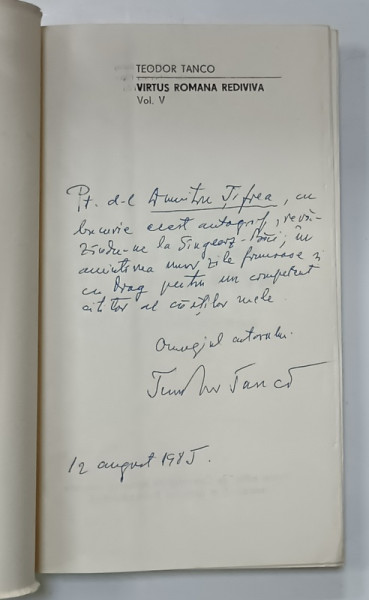 TEODOR TANCO
VIRTUS ROMANA REDIVIVA
Vol. V
Pt. d-l Dumitru Țifrea, cu
bucurie acest autograf, revă-
zîndu-ne la Sîngeorz-Băi, în
amintirea unor zile frumoase și
cu drag pentru un competent
cititor al cărților mele.
Omagiul autorului.
Teodor Tanco
12 august 1985.